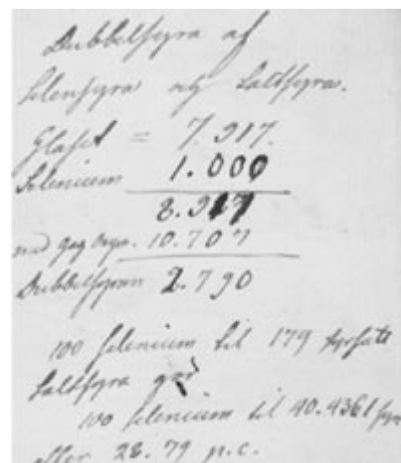 Dubbelsyra af
Selensyra och Saltsyra.
Glaset = 7.917.
Selenium 1.000
8.917
med 10.707
Dubbelsyran 2.790
100 selenium til 179
Saltsyra
100 selenium til 40.4361
eller 28.79 p.c.